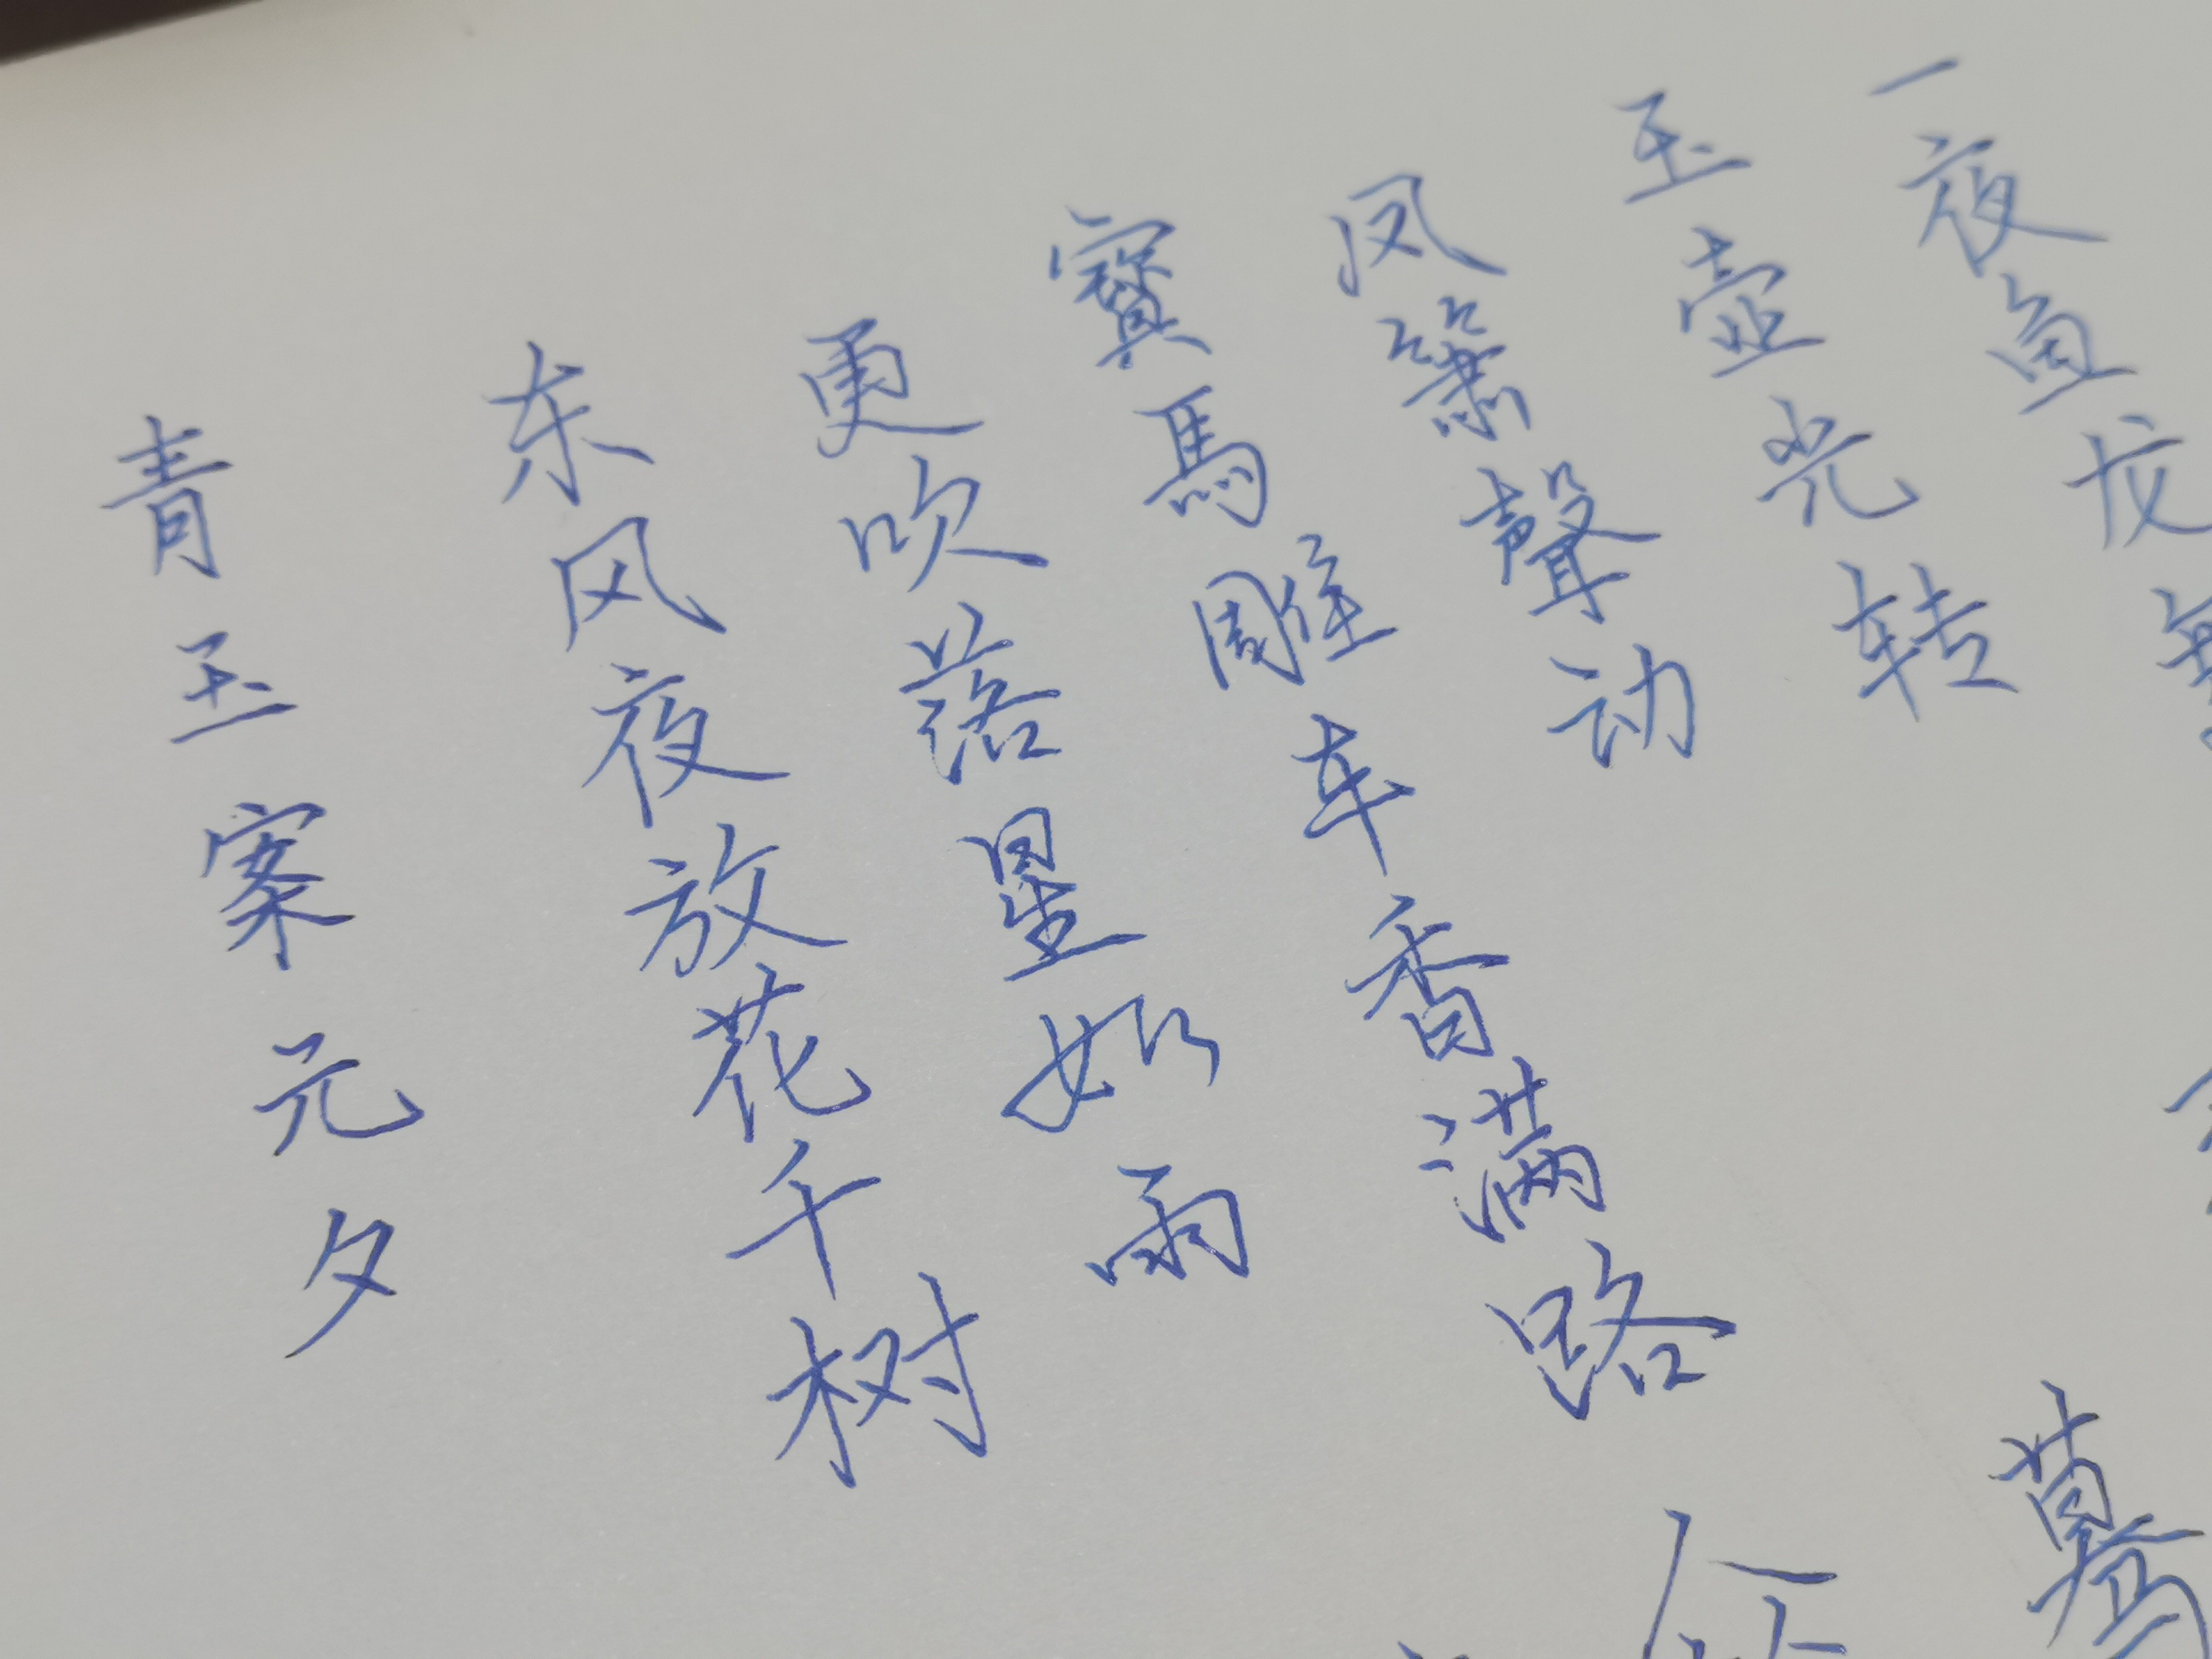 青玉案元夕
东风夜放花千树
更吹落星如雨
寶馬雕车香满路
凤簫聲动
玉壶光转
一夜鱼龙